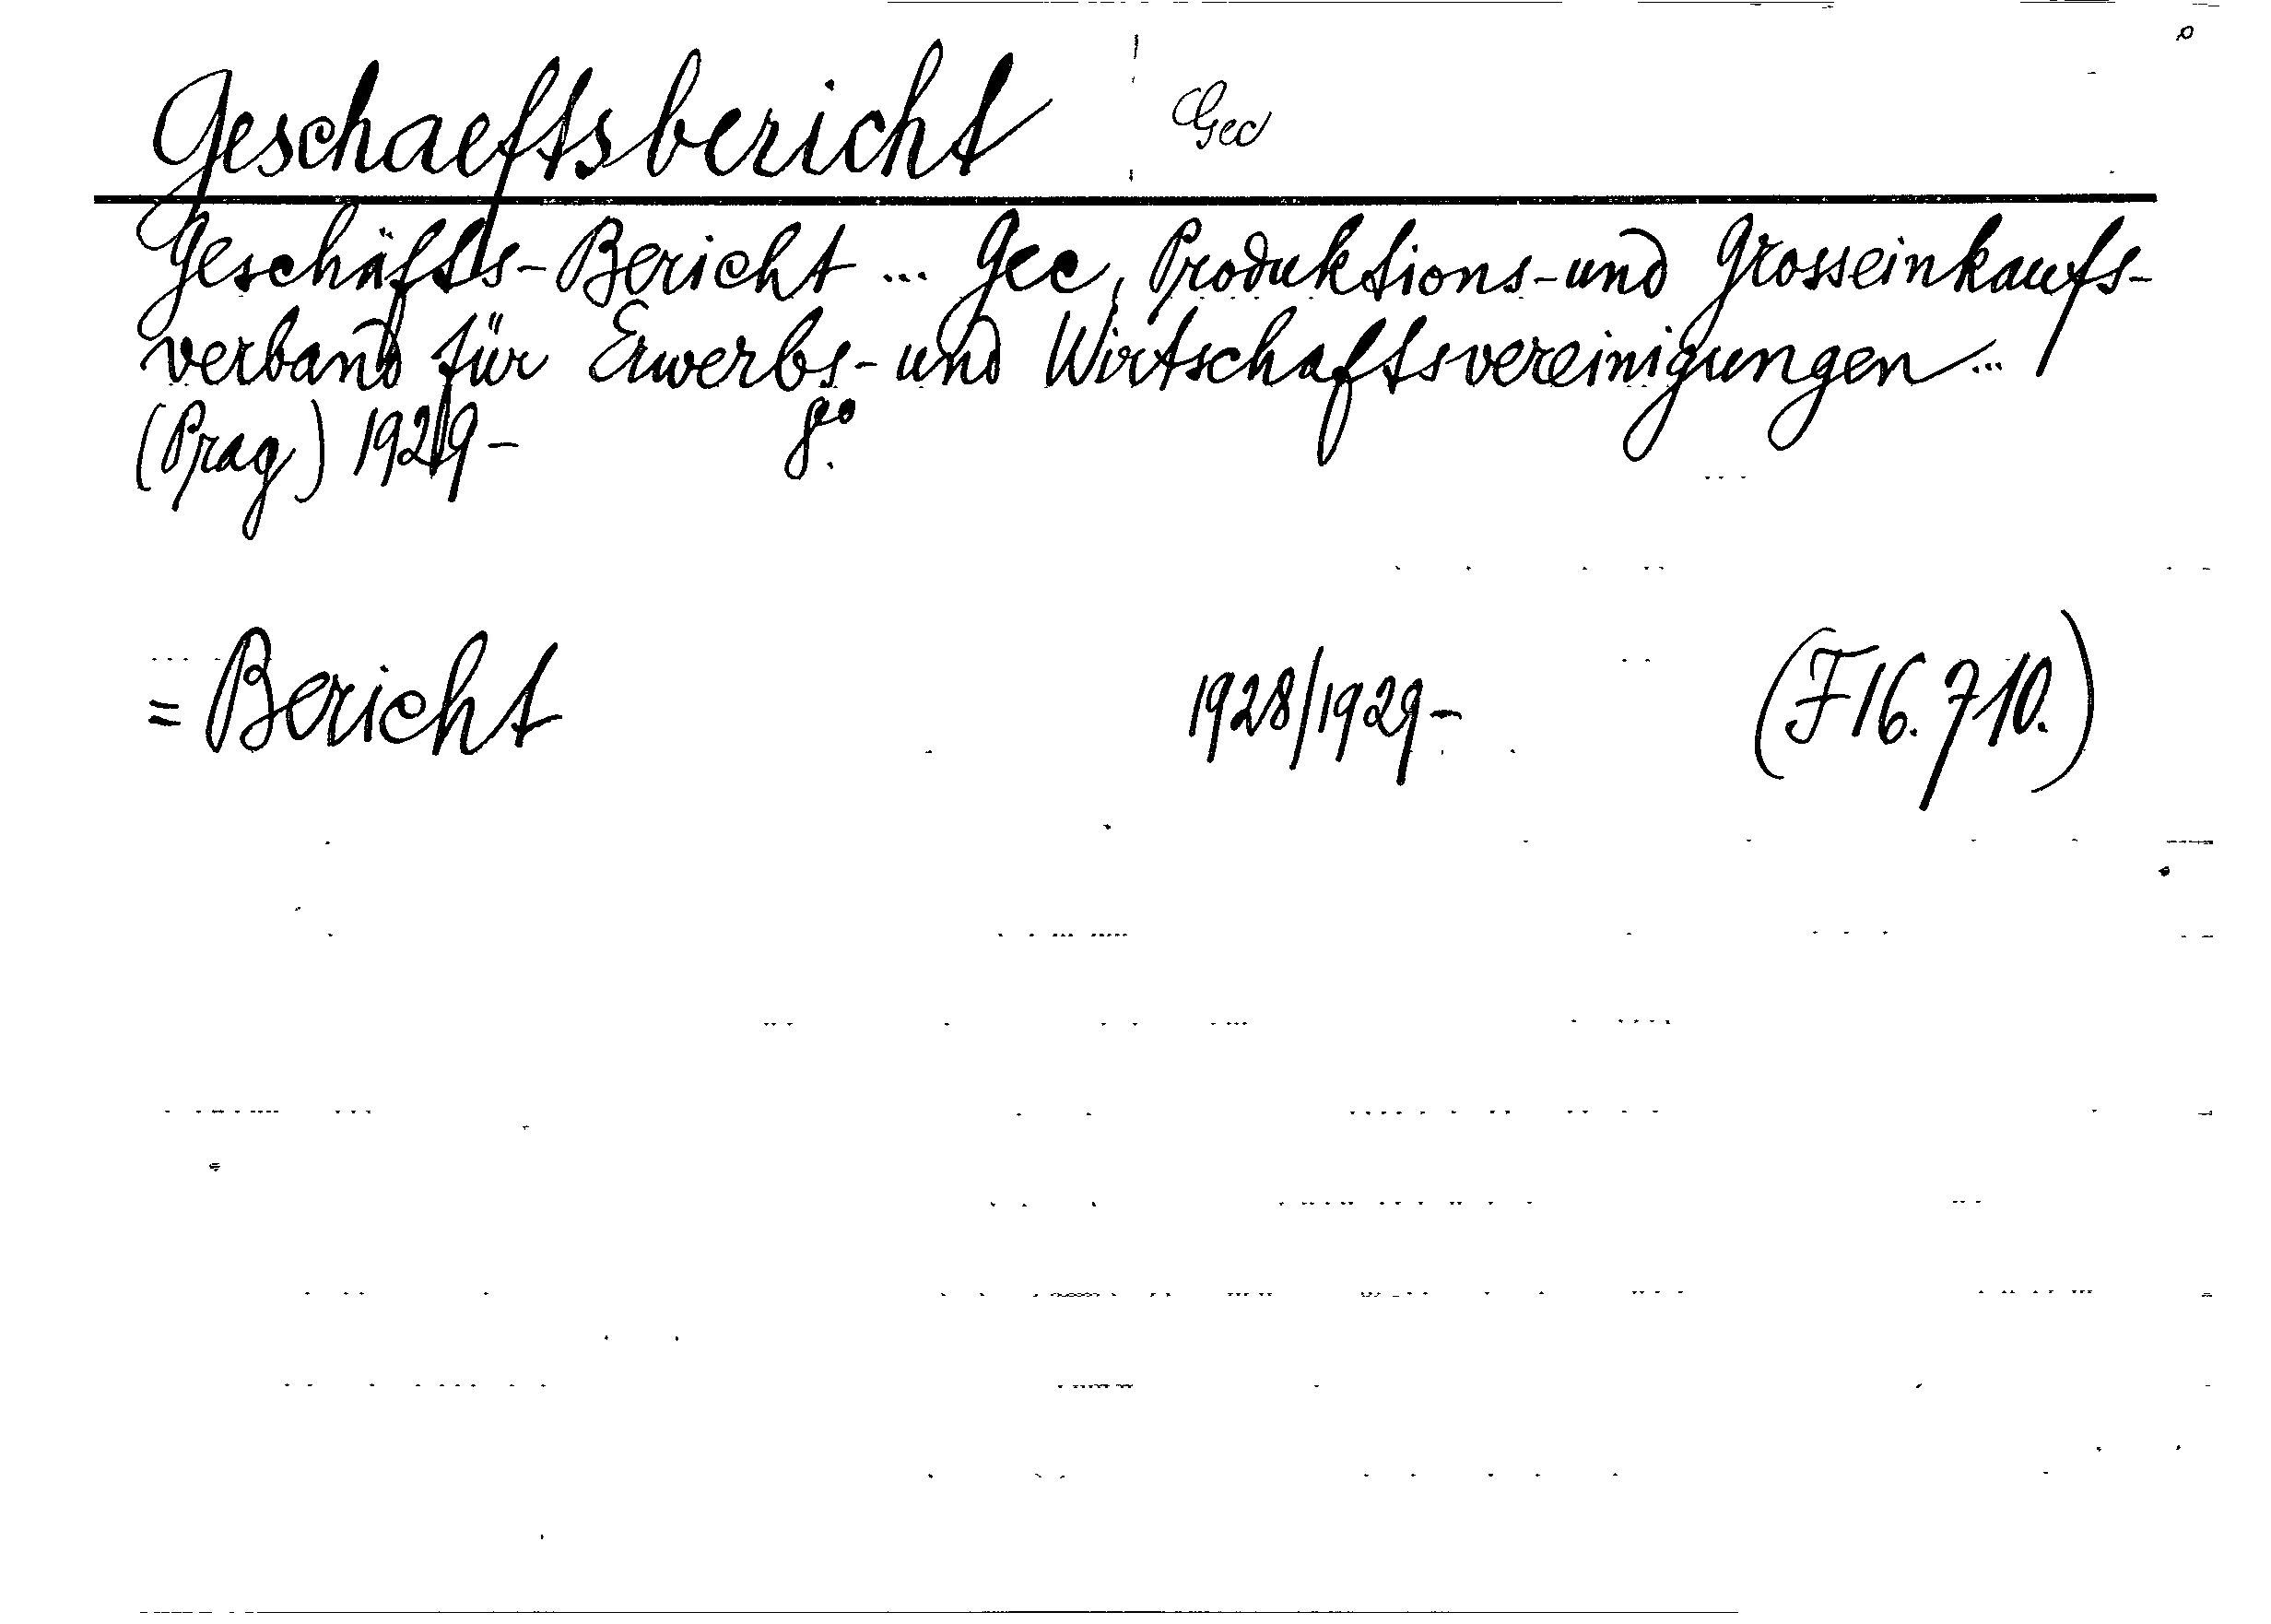 Geschaeftsbericht Gec
Geschäfts-Bericht ... Gec, Produktions- und Grosseinkaufs-
verband für Erwerbs- und Wirtschaftsvereinigungen ...
(Prag) 1929- 8º.
= Bericht 1928/1929- (F 16.710.)